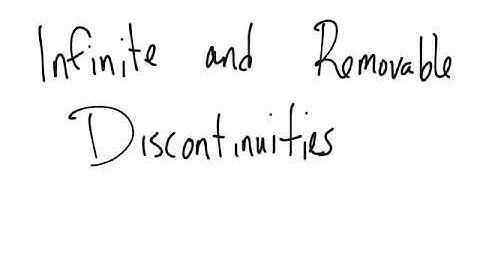 Infinite and Removable
Discontinuities